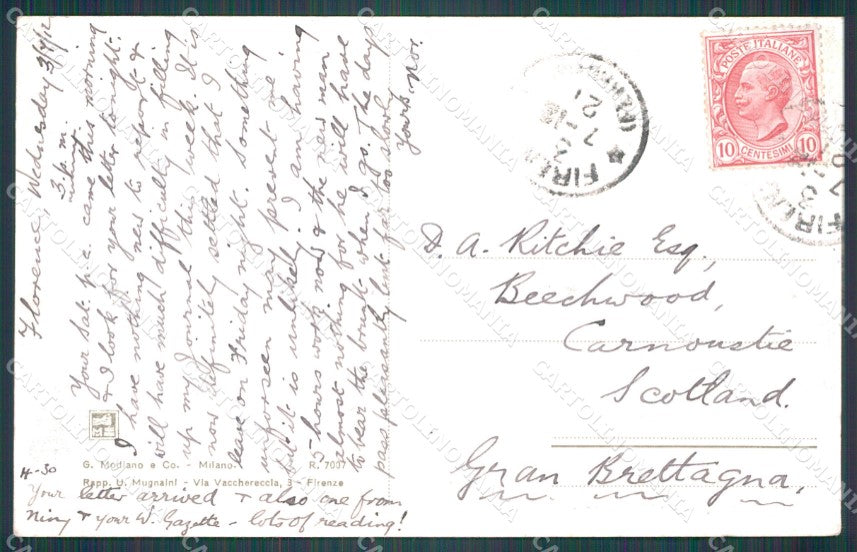 Florence, Wednesday 3/7/12
3. p.m.
Your Sat. p.c. came this morning
& I look for your letter tonight.
I have nothing new to report &
will have much difficulty in filling
up my Journal this week. It is
now definitely settled that I
leave on Friday night. Something
unforseen may prevent me
but it is unlikely. I am having
5 hours work now & the new man
almost nothing for he will have
to bear the brunt when I go. The days
pass pleasantly but far too slowly
Yours, Nor.
G. Modiano e Co. - Milano. R. 7007
Rapp. U. Mugnaini - Via Vacchereccia, 3 - Firenze
4-30
Your letter arrived & also one from
Niny & your W. Gazette - lots of reading!
POSTE ITALIANE
10 10
CENTESIMI
D. A. Ritchie Esq.,
Beechwood,
Carnoustie
Scotland.
Gran Brettagna,
CARTOLINOMANIA